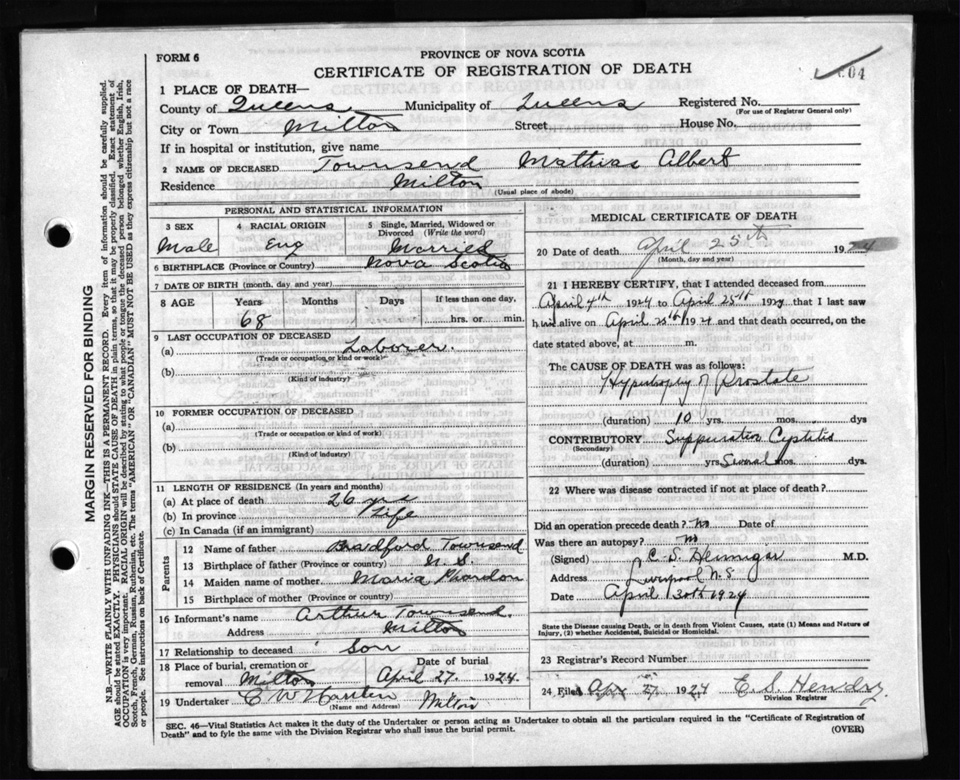 FORM 6
PROVINCE OF NOVA SCOTIA
CERTIFICATE OF REGISTRATION OF DEATH
04
1 PLACE OF DEATH—
County of Queens Municipality of Queens Registered No.
(For use of Registrar General only)
City or Town Milton Street House No.
If in hospital or institution, give name
2 NAME OF DECEASED Townsend Mathias Albert
Residence Milton
(Usual place of abode)
PERSONAL AND STATISTICAL INFORMATION
3 SEX 4 RACIAL ORIGIN 5 Single, Married, Widowed or Divorced (Write the word)
Male Eng Married
6 BIRTHPLACE (Province or Country) Nova Scotia
7 DATE OF BIRTH (month, day, and year)
8 AGE Years Months Days If less than one day,
68 hrs. or min.
9 LAST OCCUPATION OF DECEASED
(a) Laborer.
(Trade or occupation or kind of work)
(b)
(Kind of industry)
10 FORMER OCCUPATION OF DECEASED
(a)
(Trade or occupation or kind of work)
(b)
(Kind of industry)
11 LENGTH OF RESIDENCE (In years and months)
(a) At place of death 26 yrs
(b) In province Life
(c) In Canada (if an immigrant)
Parents
12 Name of father Bradford Townsend
13 Birthplace of father (Province or country) N. S.
14 Maiden name of mother Maria
15 Birthplace of mother (Province or country)
16 Informant's name Arthur Townsend.
Address Milton
17 Relationship to deceased Son
18 Place of burial, cremation or removal Milton Date of burial April 27. 1924.
19 Undertaker C W Milton
(Name and Address)
MEDICAL CERTIFICATE OF DEATH
20 Date of death April 25th 1924
(Month, day and year)
21 I HEREBY CERTIFY, that I attended deceased from
April 4th 1924 to April 25th 1924 that I last saw
h im alive on April 25th 1924 and that death occurred, on the
date stated above, at m.
The CAUSE OF DEATH was as follows:
Hypertrophy of Prostate
(duration) 10 yrs. mos. dys
CONTRIBUTORY Suppurative Cystitis
(Secondary)
(duration) yrs. Several mos. dys.
22 Where was disease contracted if not at place of death?
Did an operation precede death? no Date of
Was there an autopsy? no
(Signed) C. S. M.D.
Address Liverpool N. S
Date April 30th 1924
State the Disease causing Death, or in death from Violent Causes, state (1) Means and Nature of
Injury, (2) whether Accidental, Suicidal or Homicidal.
23 Registrar's Record Number
24 Filed Apr 27 1924 E. S. Hendry
Division Registrar
SEC. 46—Vital Statistics Act makes it the duty of the Undertaker or person acting as Undertaker to obtain all the particulars required in the "Certificate of Registration of
Death" and to fyle the same with the Division Registrar who shall issue the burial permit. (OVER)
MARGIN RESERVED FOR BINDING
N.B.—WRITE PLAINLY WITH UNFADING INK—THIS IS A PERMANENT RECORD. Every item of information should be carefully supplied.
AGE should be stated EXACTLY. PHYSICIANS should STATE CAUSE OF DEATH in plain terms, so that it may be properly classified. Exact statement of
OCCUPATION is very important. RACIAL ORIGIN will be described by stating to what people or tongue the deceased person belonged whether English, Irish,
Scotch, French, German, Russian, Ruthenian, etc. The terms "AMERICAN" OR "CANADIAN" MUST NOT BE USED as they express citizenship but not a race
or people. See instructions on back of Certificate.